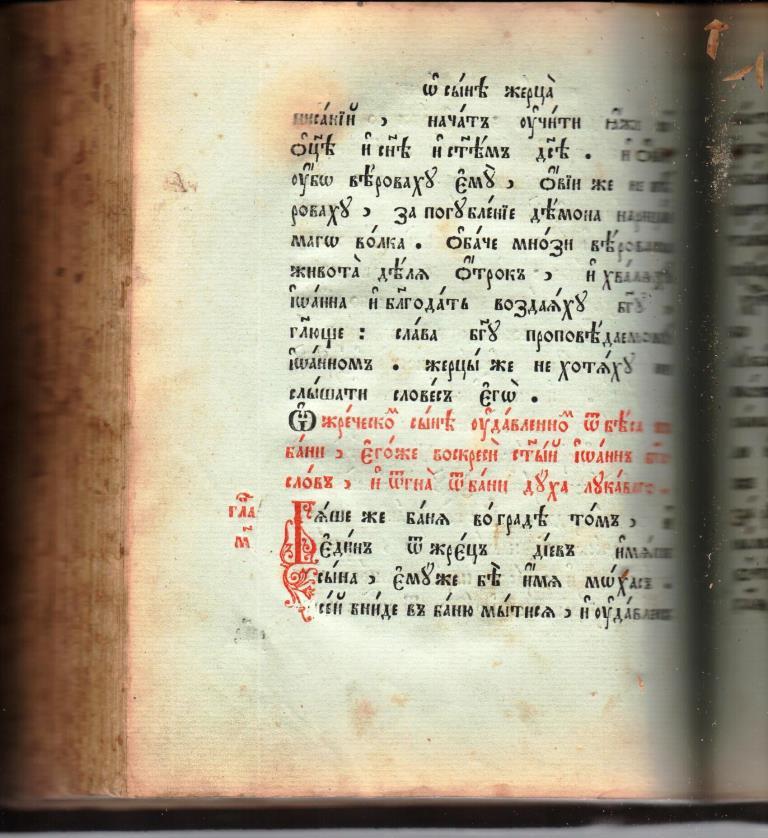 Ѡ҆ сы́нѣ жерца̀
писа́нїй , нача́тъ оу҆чи́ти ꙗ҆́же
ѻ҆ц҃ѣ и҆ сн҃ѣ и҆ ст҃ѣмъ дс҃ѣ . и҆
оу҆́бѡ вѣ́роваху є҆мꙋ̀ , ѻ҆ві́и же не
роваху , за погꙋбле́нїе де́мона
магѡ во́лка . ѻ҆ба́че мно́зи
живота̀ дѣ́лѧ ѻ҆́трокъ , и҆
і҆ѡа́нна и҆ блг҃ода́ть воздаѧ́ху бг҃ꙋ ,
гл҃юще : сла́ва бг҃ꙋ проповѣ́даемомꙋ
і҆ѡа́нномъ . жерцы́ же не хотѧ́ху
слы́шати слове́съ є҆гѡ̀ .
Ѡ҆ жре́ческоⷨ сы́нѣ оу҆да́вленноⷨ ѿ бѣ́са
ба́ни , є҆го́же воскресѝ ст҃ы́й і҆ѡа́ннъ
сло́въ , и҆ ѿгна̀ ѿ ба́ни дꙋ́ха лꙋка́ваго
гла
м҃
Бѧ́ше же ба́нѧ во гра́дѣ то́мъ , и҆
є҆ди́нъ ѿ жре́цъ ді́евъ и҆мѧ́ше
сы́на , є҆мꙋ́же бѣ̀ и҆́мѧ мѡ́хасъ .
се́й вни́де въ ба́ню мы́тисѧ , и҆ оу҆да́вленъ